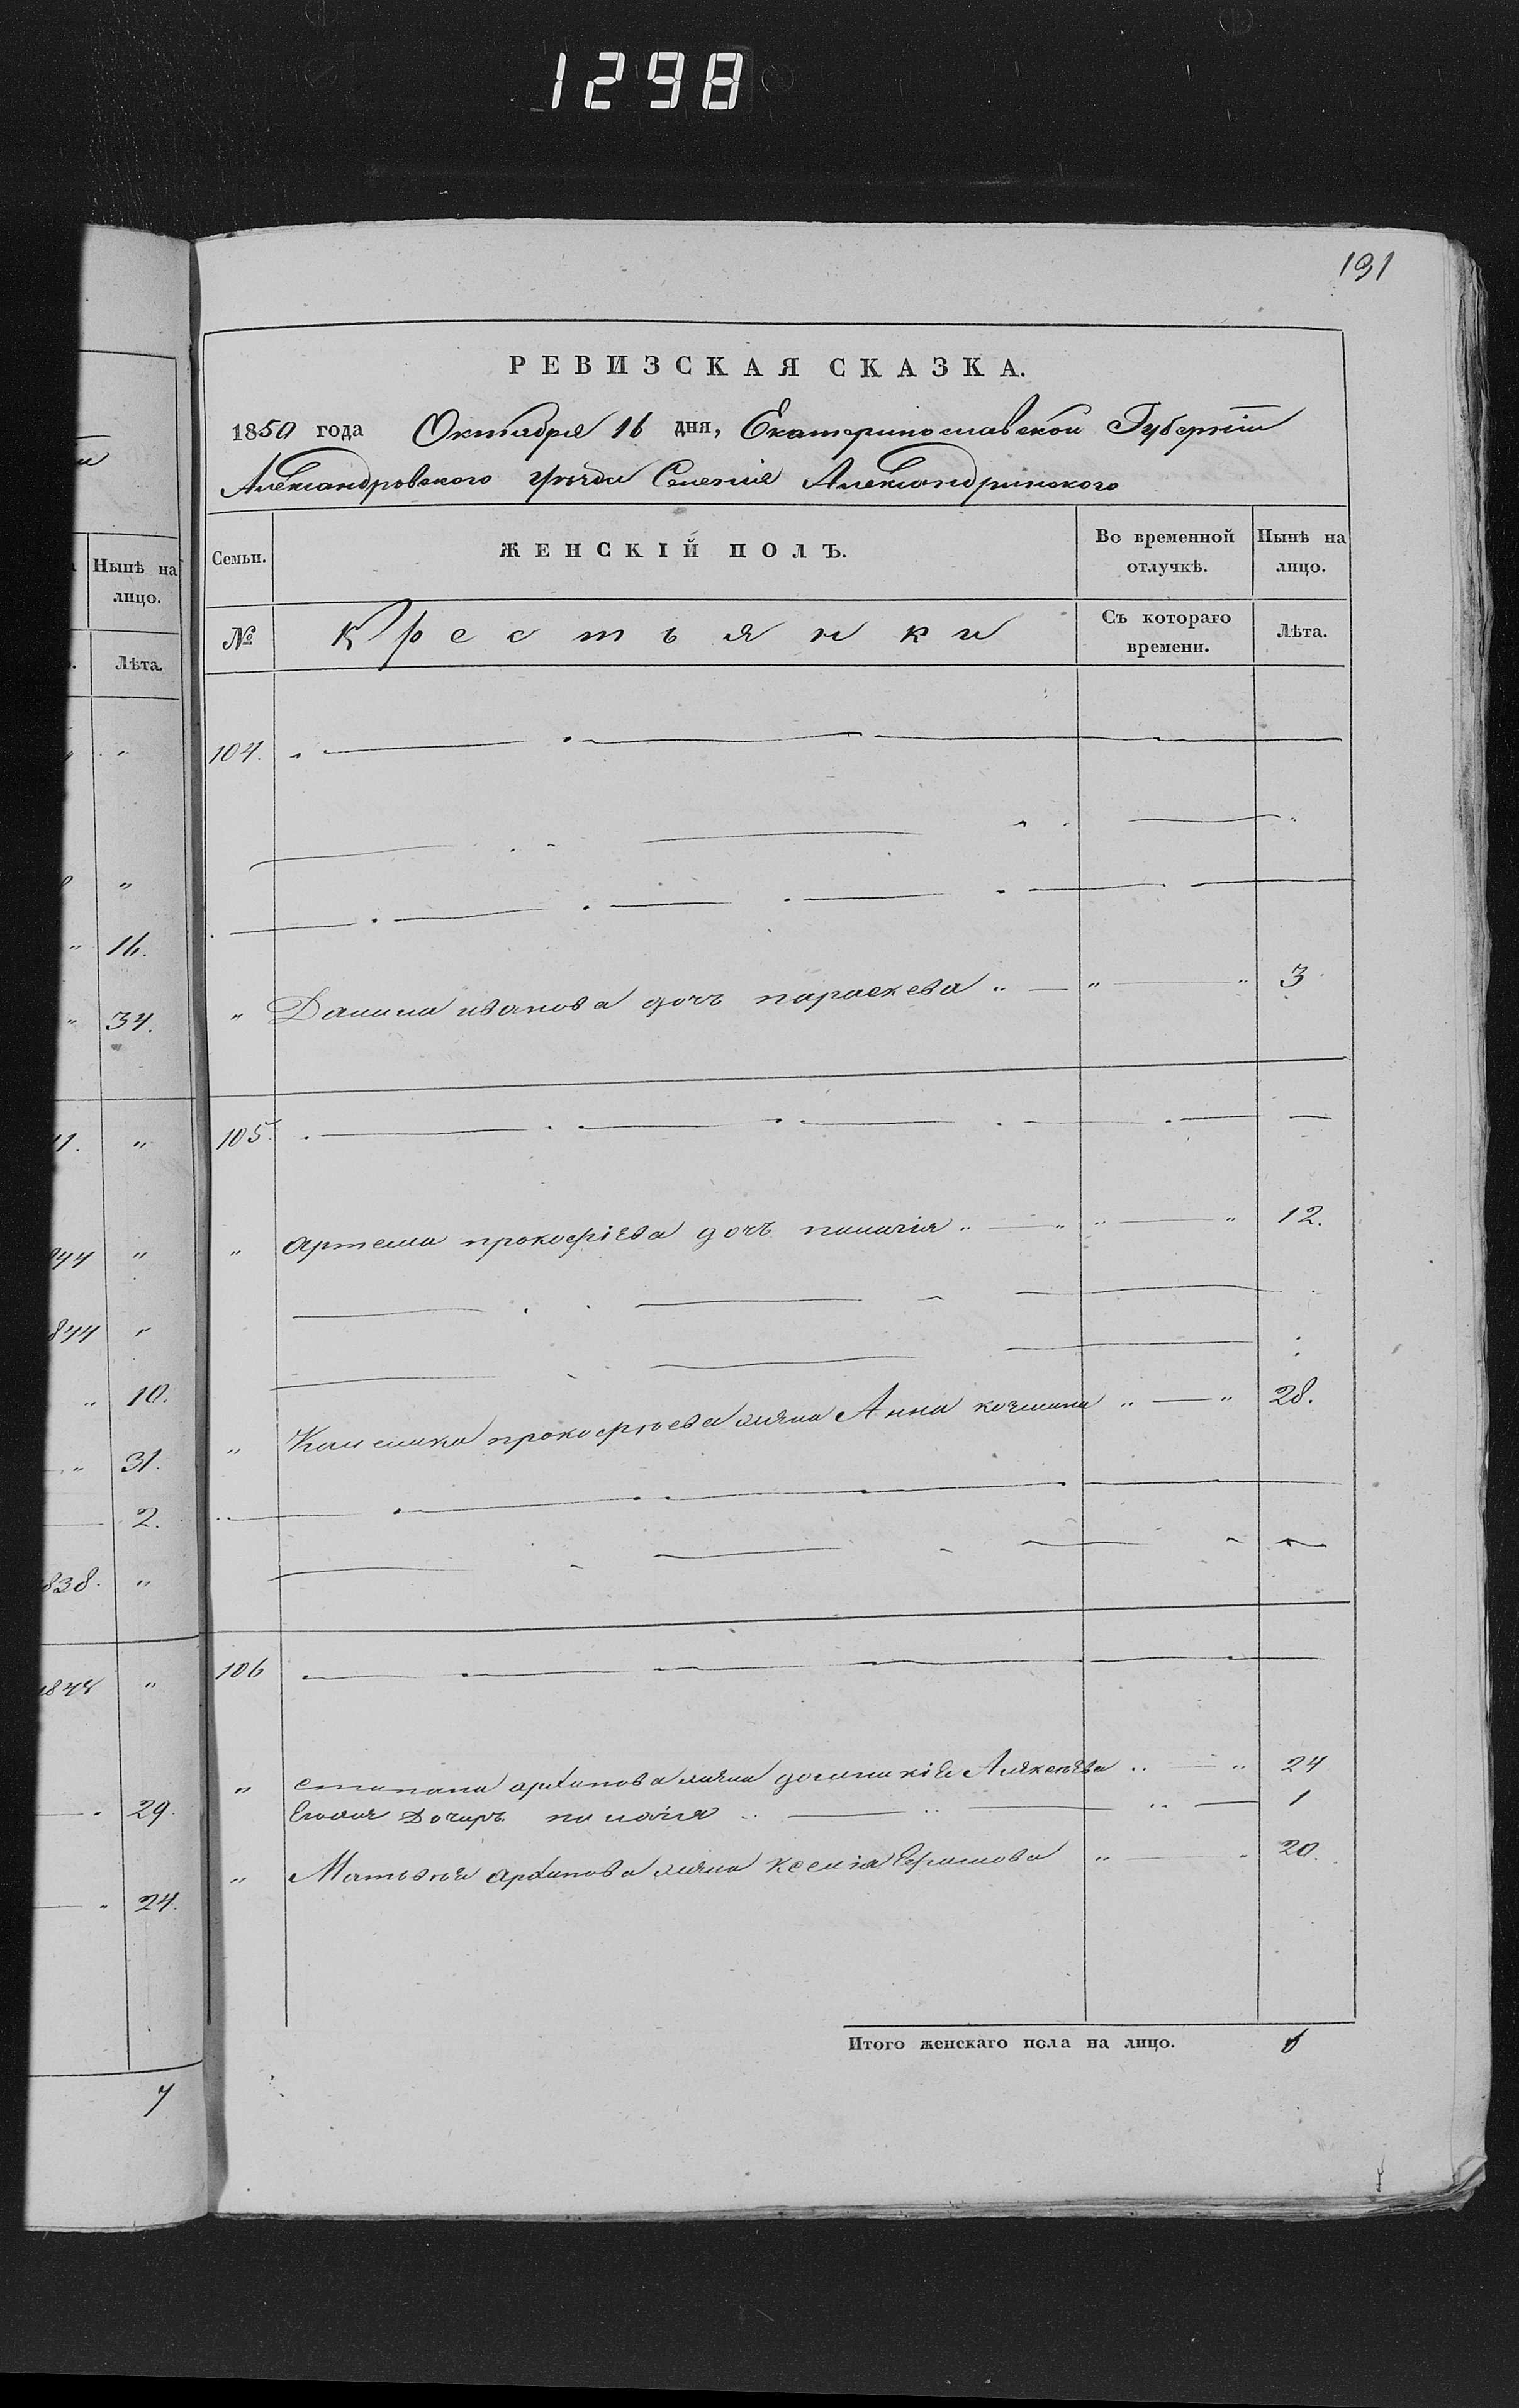 1298
191
РЕВИЗСКАЯ СКАЗКА.
1850 года Октября 16 дня, Екатеринославской Губерніи
Александровского уѣзда Селенія Александринского
Семьи. ЖЕНСКІЙ ПОЛЪ. Во временной отлучкѣ. Нынѣ на лицо.
№ Крестьянки Съ котораго времени. Лѣта.
104.
" Данила иванова дочь параскева " — " — " 3
105.
" Артема прокофіева дочь пилагія " — " " — " 12.
" прокофьева жена Анна " — " 28.
106
" степана архипова жена Алексѣева " — " 24
Егожа Дочирь пилагія " — " — " — 1
" Матвея архипова жена Ксенія Ефимова " — " 20.
Итого женскаго пола на лицо. 6
Нынѣ на
лицо.
Лѣта.
"
"
" 16.
" 34.
"
"
844 "
" 10.
" 31.
2.
838. "
1848 "
29.
" 24.
7